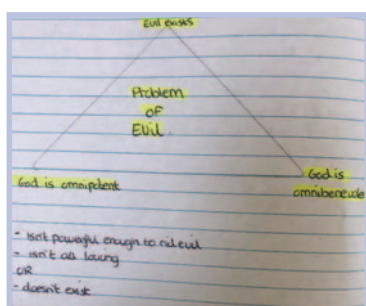 Evil exists
Problem
OF
EVIL
God is omnipotent
God is
omnibenevole
- isn't powerful enough to rid evil
- isn't all loving
OR
- doesn't exist